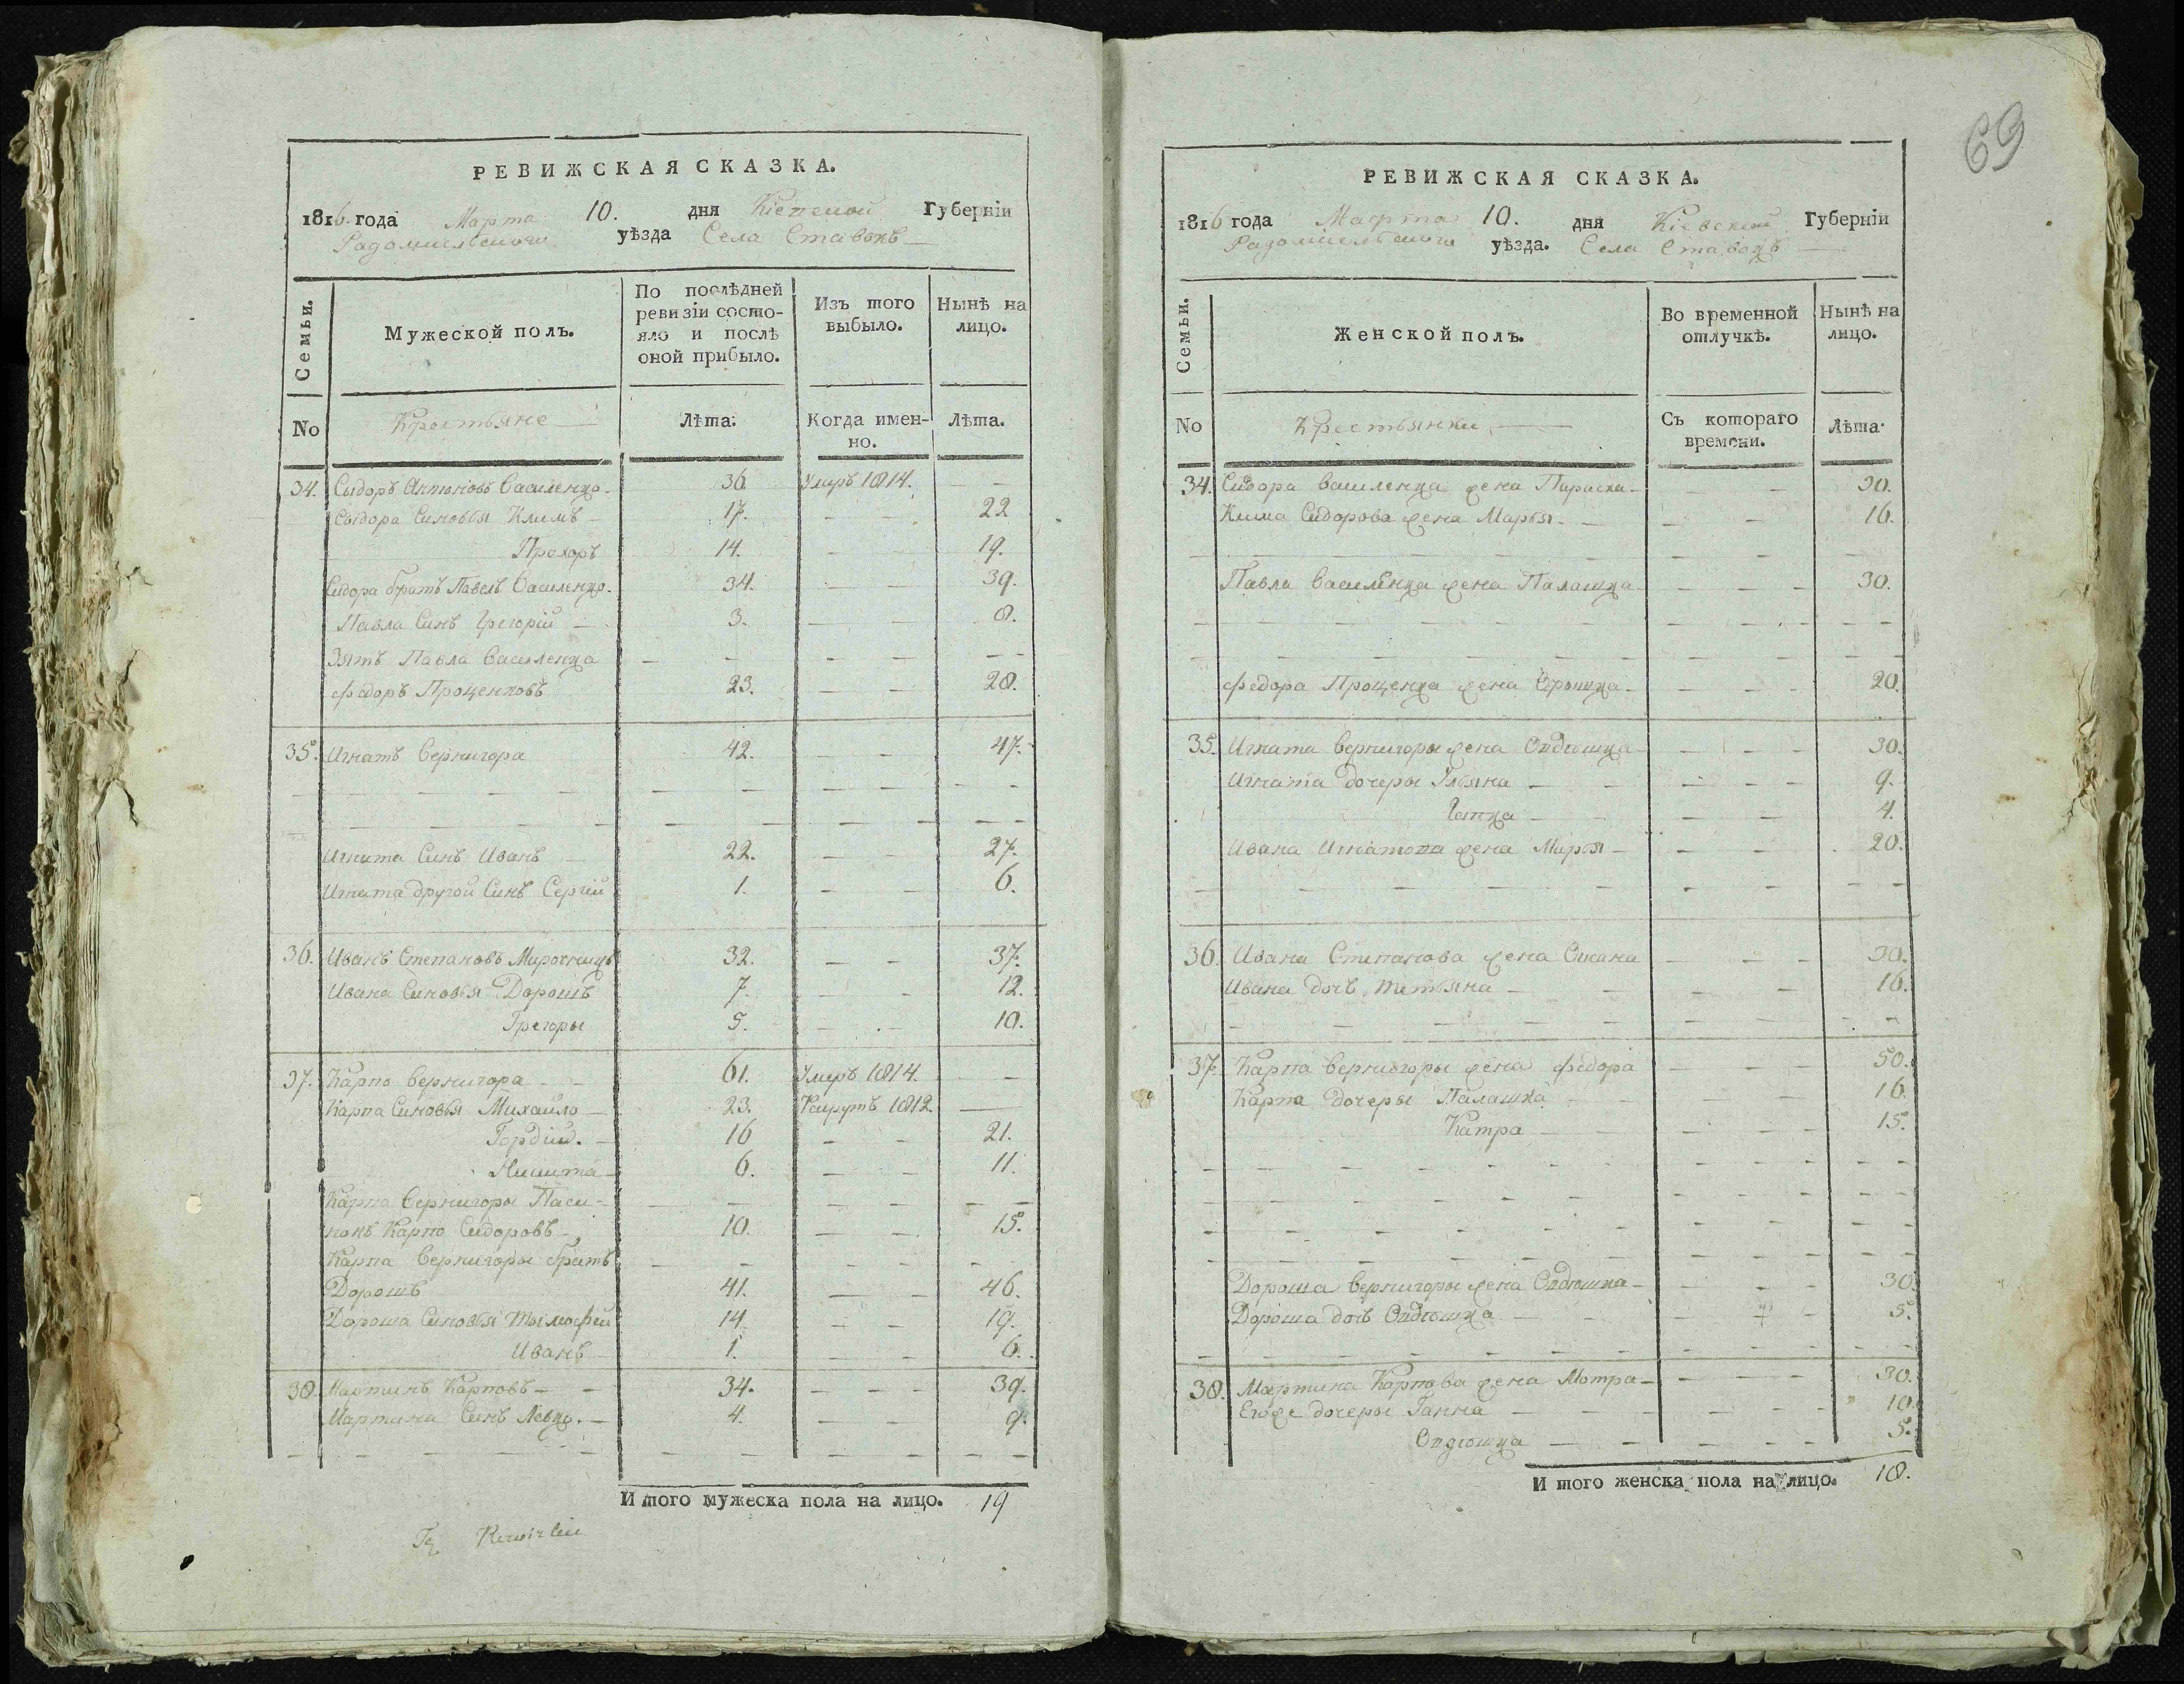 РЕВИЖСКАЯ СКАЗКА.
1816. года Марта 10. дня Кіевской Губерніи
Радомисльского уѣзда Села Ставокъ
Семьи.
Мужеской полъ.
По послѣдней ревизіи состояло и послѣ оной прибыло.
Изъ того выбыло.
Нынѣ на лицо.
No Крестьяне Лѣта. Когда именно. Лѣта.
34. Сыдоръ Антоновъ Василенко. 36 Умеръ 1814. — —
Сыдора Синовья Климъ — 17. — — 22
Прохоръ 14. — — 19.
Сидора братъ Павелъ Василенко. 34. — — 39.
Павла Синъ Грегорій — 3. — — 8.
Зять Павла Василенка — — — — — —
Федоръ Проценковъ 23. — — 28.
35. Игнатъ Вернигора 42. — — 47.
Игната Синъ Иванъ — 22. — — 27.
Игната другой Синъ Сергій 1. — — 6.
36. Иванъ Степановъ Мирошникъ 32. — — 37.
Ивана Синовья Дорошъ 7. — — 12.
Грегоры 5. — — 10.
37. Карпо Вернигора — — 61. Умеръ 1814. —
Карпа Синовья Михайло — 23. Рекрутъ 1812. —
Гордій. — 16 — — 21.
Никита — 6. — — 11.
Карпа Вернигоры Паси- — — — — — —
нокъ Карпо Сидоровъ — 10. — — 15.
Карпа Вернигоры братъ — — — — —
Дорошъ 41. — — 46.
Дороша Синовья Тымофей 14. — — 19.
Иванъ — 1. — — 6.
38. Мартинъ Карповъ — — 34. — — — 39.
Мартина Синъ Левко. — 4. — — 9.
И того мужеска пола на лицо. 19
69
РЕВИЖСКАЯ СКАЗКА.
1816 года Марта 10. дня Кіевской Губерніи
Радомисльского уѣзда. Села Ставокъ —
Семьи.
Женской полъ.
Во временной отлучкѣ.
Нынѣ на лицо.
No Крестьянки — Съ котораго времени. Лѣта.
34. Сидора Василенка жена Параска — — — 30.
Клима Сидорова жена Марья — — — — 16.
Павла Василенка жена Палашка — — — — 30.
Федора Проценка жена — — — — 20.
35. Игната Вернигоры жена Овдюшка — — — — 30.
Игната дочеры Ульяна — — — — — 9.
Гапка — — — — 4.
Ивана Игнатова жена Марья — — — 20.
36. Ивана Степанова жена Оксана — — — 30.
Ивана дочь Тетьяна — — — — 16.
37. Карпа Вернигоры жена Федора — — — 50.
Карпа дочеры Палашка — — — — 16.
Катра — — — — — 15.
Дороша Вернигоры жена Овдюшка — — — — 30.
Дороша дочь Овдюшка — — — — 5.
38. Мартина Карпова жена Мотра — — — — 30.
Егоже дочеры Ганна — — — — — 10.
Овдюшка — — — — — 5.
И того женска пола на лицо. 18.